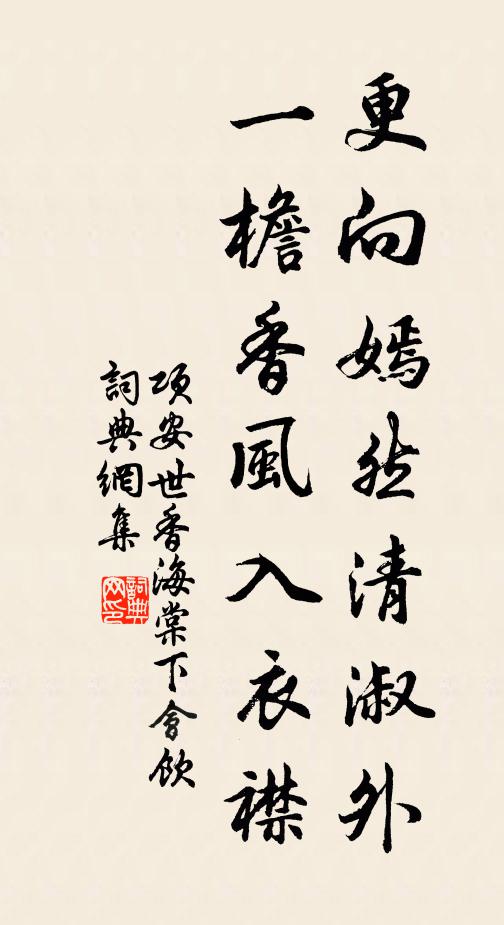 更向嫣然清淑外
一檐香風入衣襟
項安世香海棠下會飲
詞典網集
詞典
網印